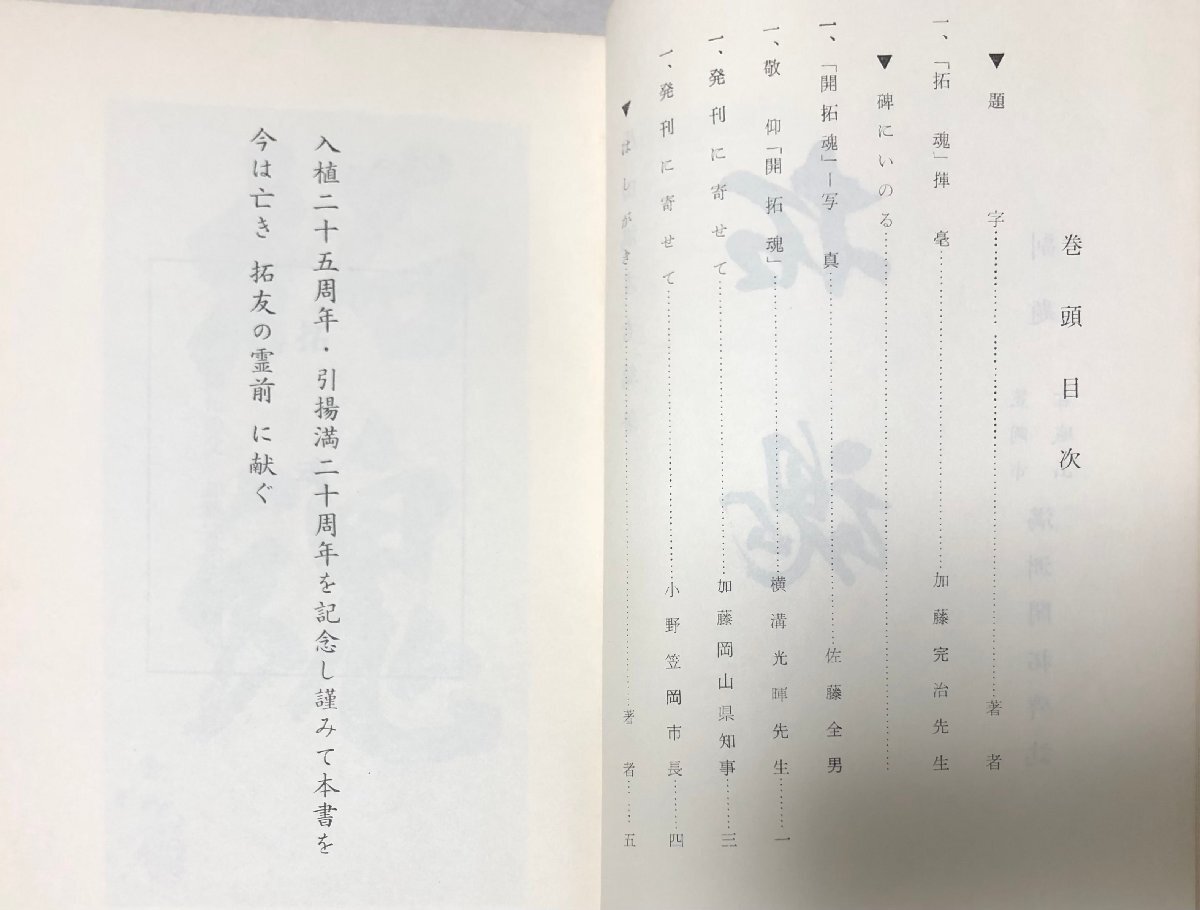 巻頭目次
▼題字……著者
一、「拓魂」揮毫……加藤完治先生
▼碑にいのる……
一、「開拓魂」―写真……佐藤全男
一、敬仰「開拓魂」……横溝光暉先生……一
一、発刊に寄せて……加藤岡山県知事……三
一、発刊に寄せて……小野笠岡市長……四
▼はしがき……著者……五
入植二十五周年・引揚満二十周年を記念し謹みて本書を
今は亡き 拓友の霊前に献ぐ